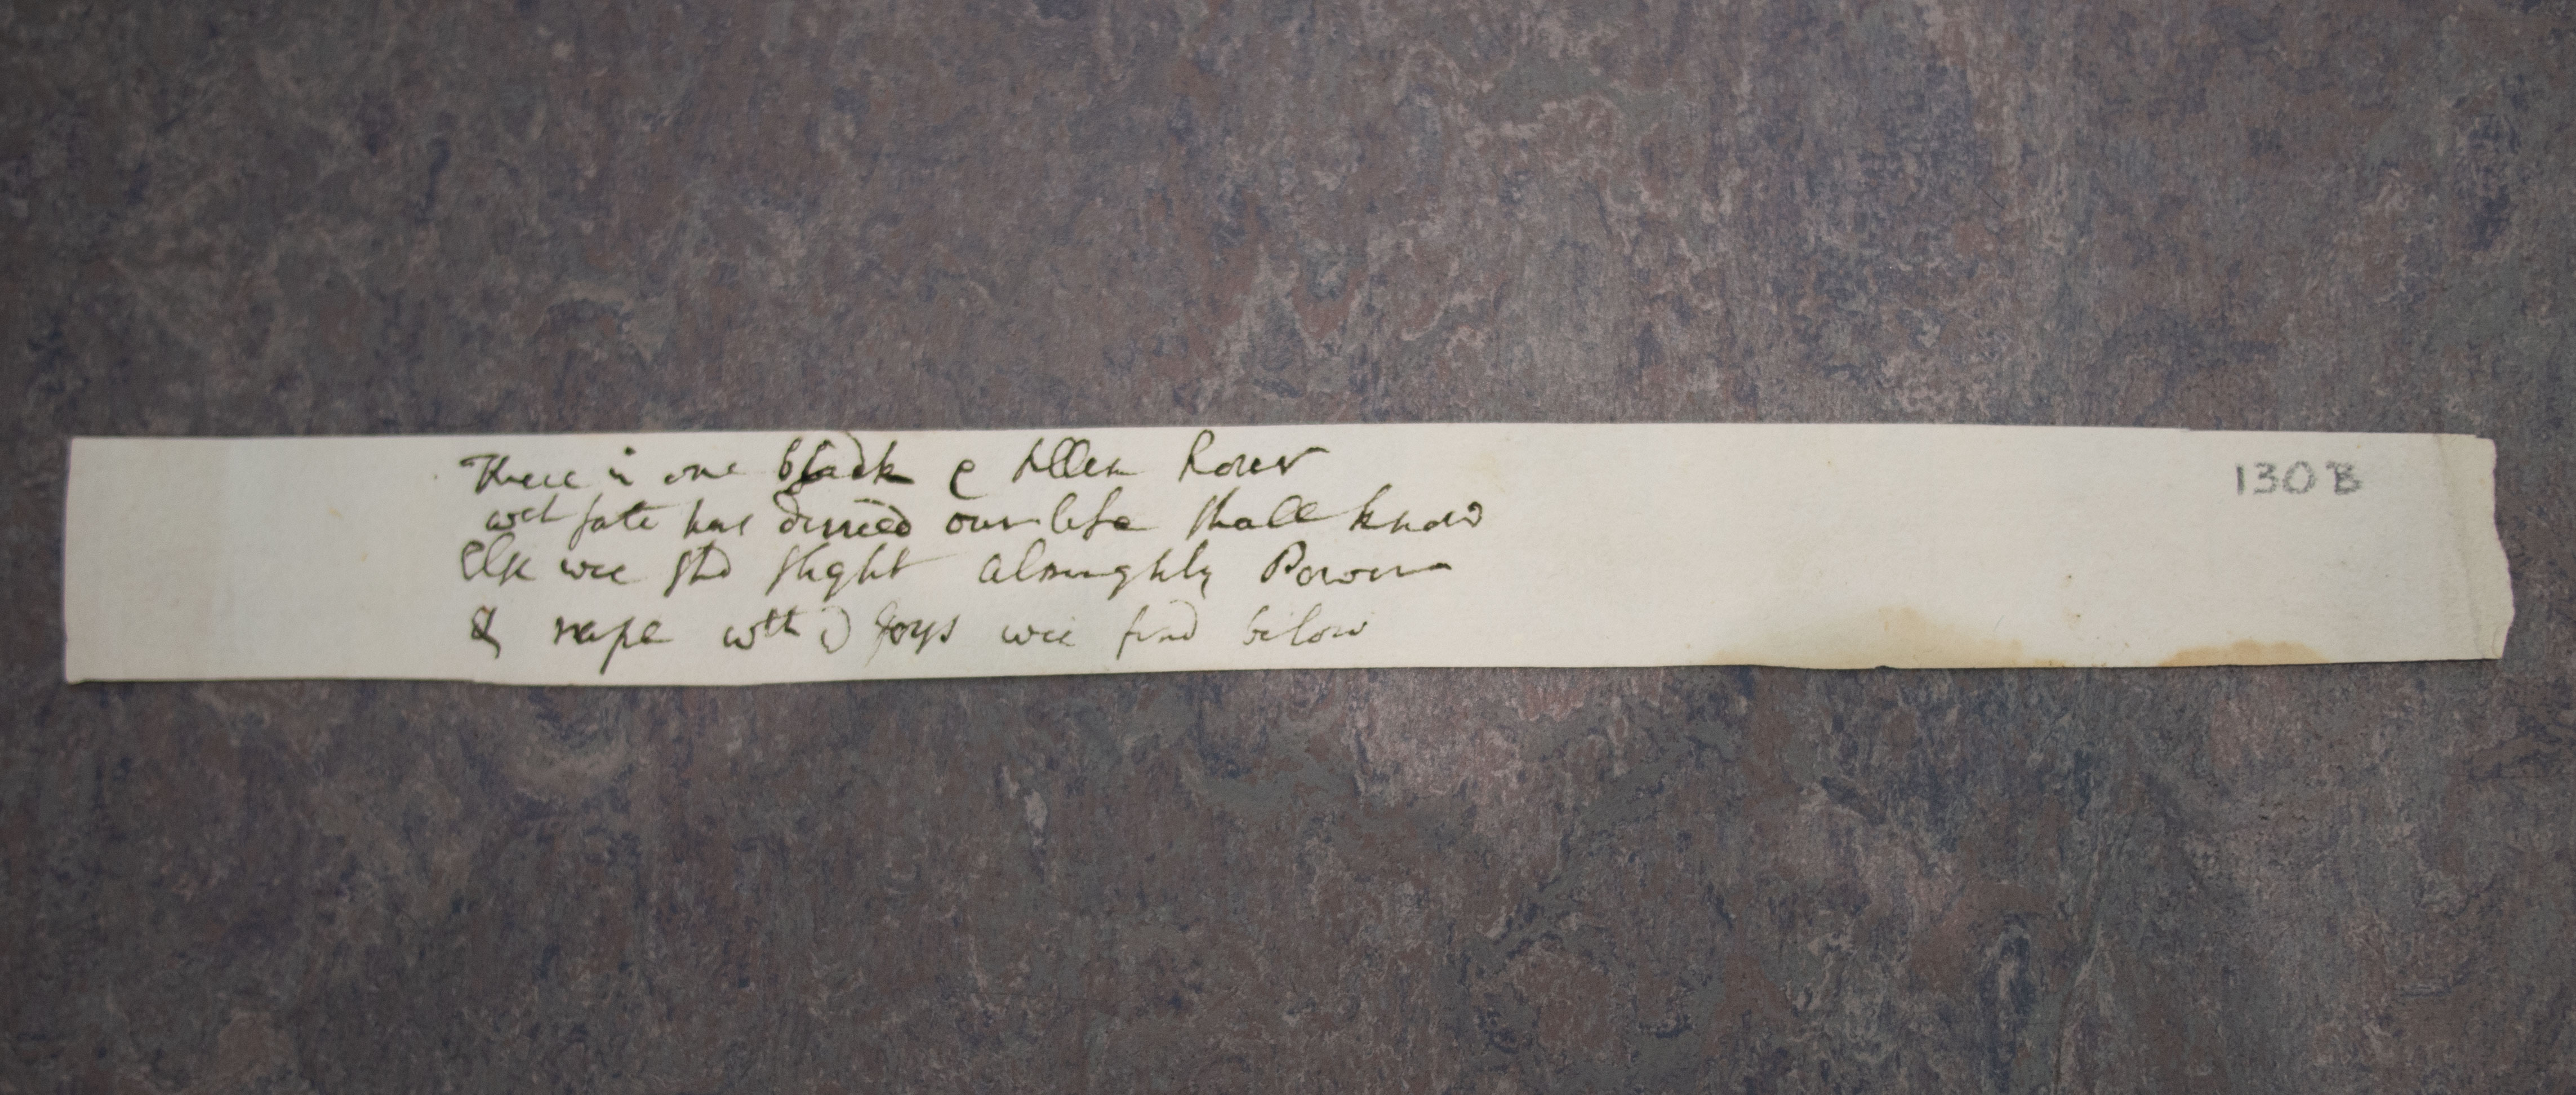 There is one black & sullen hower
130B
wch fate has decreed our life shall know
Else wee shd slight Almighty Power
& rapt wth ye Joys wee find below